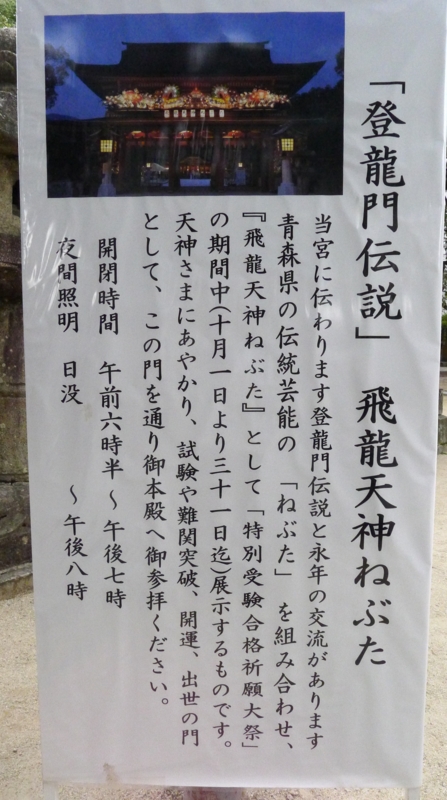 「登龍門伝説」 飛龍天神ねぶた
当宮に伝わります登龍門伝説と永年の交流があります
青森県の伝統芸能の 「ねぶた」 を組み合わせ、
『飛龍天神ねぶた』として「特別受験合格祈願大祭」
の期間中(十月一日より三十一日迄)展示するものです。
天神さまにあやかり、試験や難関突破、開運、出世の門
として、この門を通り御本殿へ御参拝ください。
開閉時間 午前六時半 ~ 午後七時
夜間照明 日没 ~ 午後八時